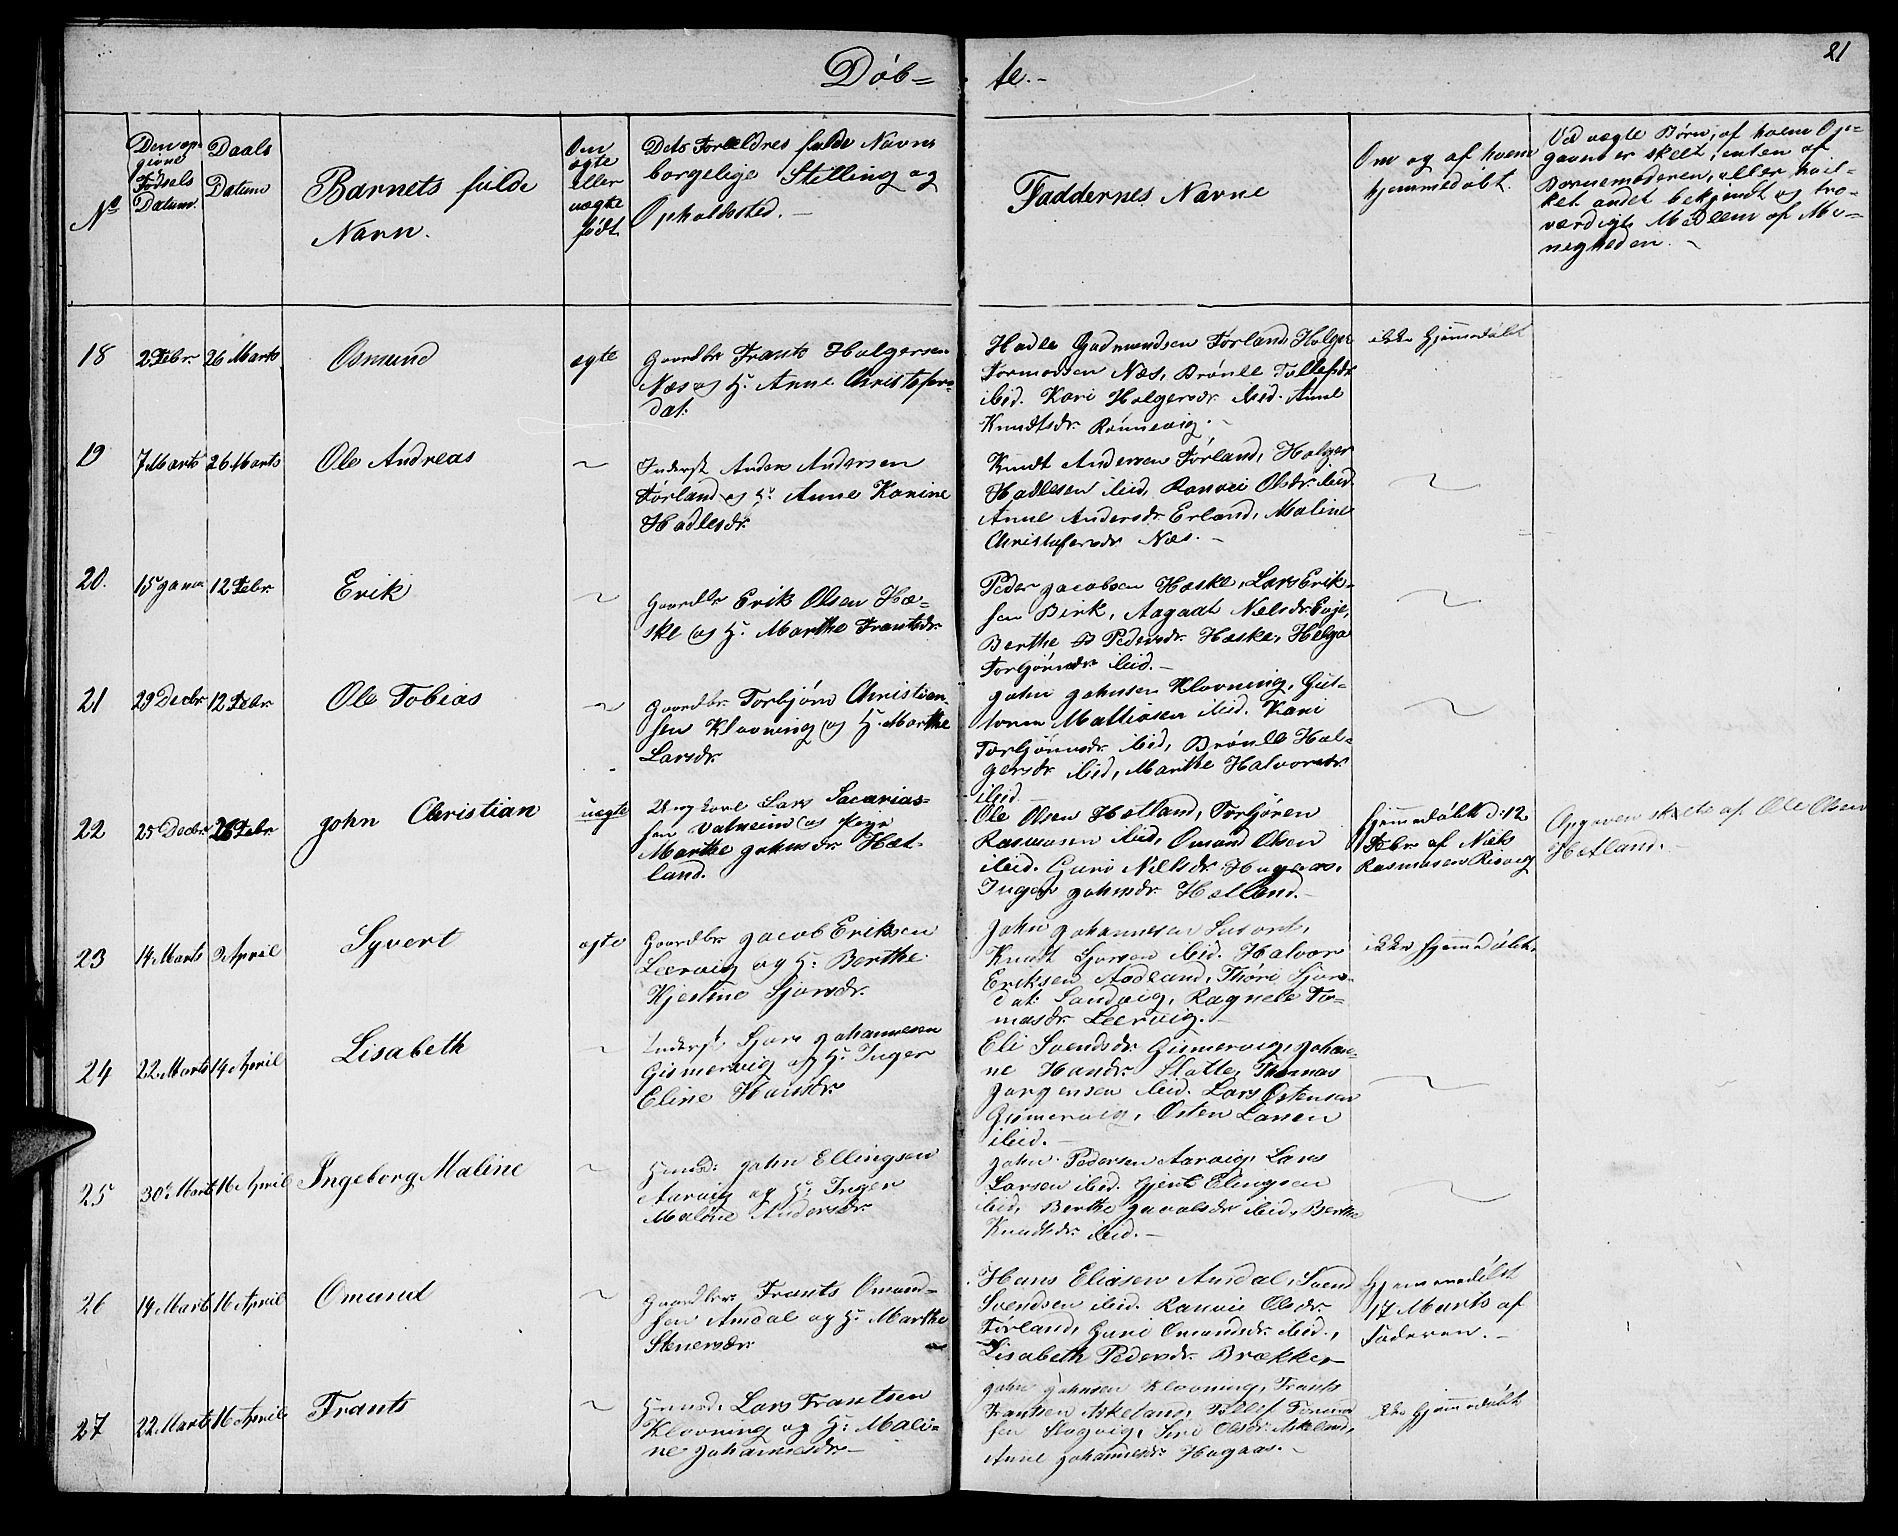 Døb=
te.-
21
No
Den op-
givne
Fødsels
Datum.
Daabs
Datum
Barnets fulde
Navn.
Om
ægte
eller
uægte
født.
Dets Forældres fulde Navne
borgelige Stilling og
Opholdssted. -
Faddernes Navne
Om og af hvem
hjemmedøbt.
Ved uægte Børn, af hvem Op-
gaven er skeet, enten af
Barnemoderen, eller hvil-
ket andet bekjendt og tro-
værdigt Medlem af Me-
nigheden. -
18
2 Febr
26 Marts
Osmund
ægte
Gaardbr Frants Holgersen
Næs og H. Anne Christofers-
dat.
Hadle Gudmundsen Førland, Holger
Tormodsen Næs, Brønle Tollefsdr
ibid. Kari Holgersdr. ibid. Anne
Knudtsdr. Rønnevig. -
ikke hjemmedøbt
19
7 Marts
26 Marts
Ole Andreas
~
Inderst Anders Andersen
Førland og H. Anne Karine
Hadlesdr.
Knudt Andersen Førland, Holger
Hadlesen ibid, Ranvei Olsdr ibid.
Anne Andersdr. Erland, Maline
Christofersdr Næs. -
~
20.
15 Janu
12 Febr.
Erik
~
Gaardbr Erik Olsen Hæ-
ske og H. Marthe Frantsdr.
Peder Jacobsen Hæske, Lars Erik-
sen Birk, Aagaat Nelsdr Evje,
Berthe Pedersdr. Hæske, Helga
Torbjørnsdr ibid. -
~
21
29 Decbr
12 Febr.
Ole Tobias
~
Gaardbr. Torbjørn Christian-
sen Klovning og H. Marthe
Larsdr.
John Johnsen Klovning, Gut-
torm Mathiasen ibid. Kari
Torbjørnsdr. ibid, Brønle Hol-
gersdr ibid, Marthe Halvorsdr
ibid. -
~
22
25 Decbr
26 Febr
John Christian
uægte
Ungkarl Lars Sacarias-
sen Valheim og Pige
Marthe Johnsdr Hæt-
land.
Ole Olsen Hetland, Torbjøren
Rasmusen ibid, Omund Olsen
ibid. Guri Nilsdr. Hagaas.
Inger Johnsdr. Hetland. -
hjemmedøbt d: 12
Febr. af Niels
Rasmusen Risvig
Opgaven skete af Ole Olsen
Hetland. -
23
14 Marts
2 April
Syvert
ægte
Gaardbr. Jacob Eriksen
Leervig og H. Berthe
Kjestine Sjursdr.
John Johannesen
Knudt Sjursen ibid. Halvor
Eriksen Aadland, Thóri Sjurs-
dat. Sandvig, Ragnele To-
masdr. Leervig. -
ikke hjemmedøbt.
24
22 Marts
14 April
Lisabeth
~
Inderst. Sjurs Johannesen
Gismervig og H. Inger
Eline Hansdr.
Eli Svendsdr. Gismervig, Johan-
ne Hansdr. Slotte, Thomas
Jørgensen ibid. Lars Østensen
Gismervig, Østen Larsen
ibid. -
~
25
30 Marts
16 April
Ingeborg Maline
~
Huusd: John Ellingsen
Aarvig og H: Inger
Maline Andersdr.
John Pedersen Aarvig, Lars
Larsen ibid. Gjert Elingsen
ibid, Berthe ibid, Berthe
Knudtsdr. ibid. -
~
26
14 Marts
16 April
Omund
~
Gaardbr. Frants Omund-
sen Amdal og H. Marthe
Stenersdr
Hans Eliasen Amdal, Svend
Svendsen ibid. Ranvei Olsdr.
Førland, Guri Omundsdr. ibid.,
Lisabeth Pedersdr. Brækker
Hjemmedøbt
17 Marts af
Faderen. -
27
22 Marts
16 April
Frants
~
Huusd. Lars Frantsen
Klovning og H. Mali-
ne Johannesdr. -
John Johnsen Klovning, Frants
Frantsen Askeland, Tollef
sen Slogvig, Siri Olsdr. Askeland,
Anne Johannesdr. Hagaas. -
ikke hjemmedøbt